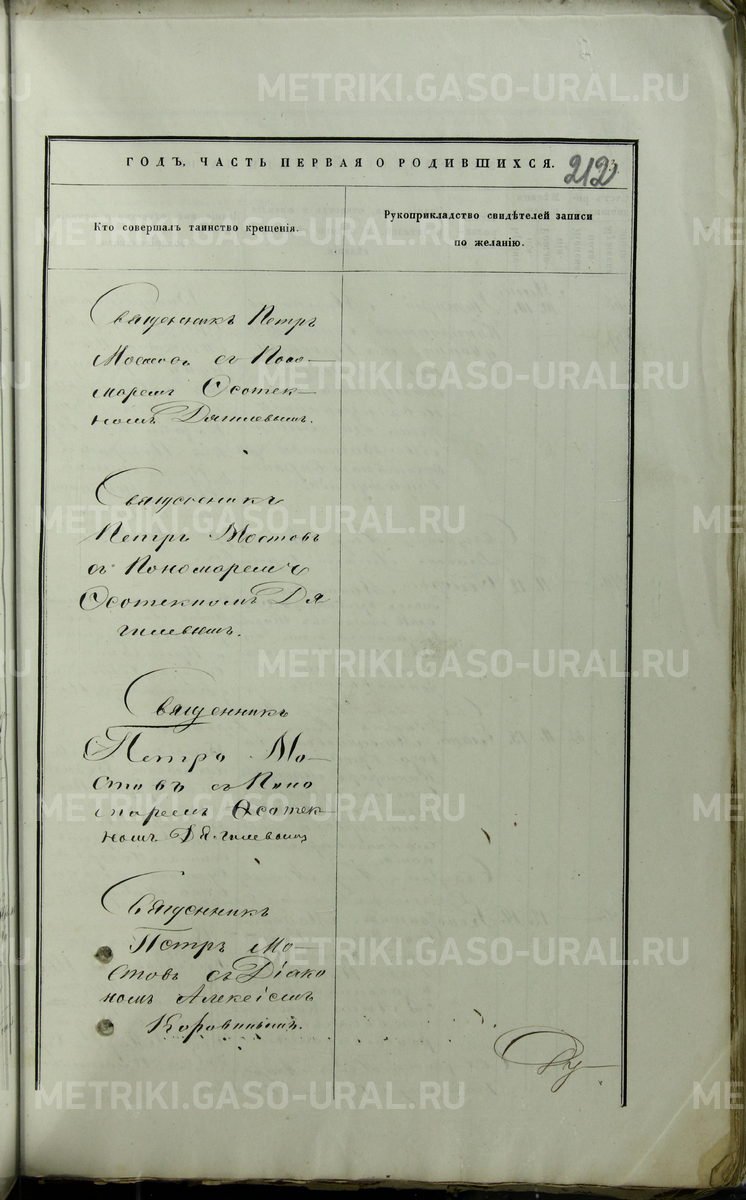 METRIKI.GASO-URAL.RU
ГОДЪ, ЧАСТЬ ПЕРВАЯ О РОДИВШИХСЯ.
212
Кто совершалъ таинство крещенія.
Рукоприкладство свидѣтелей записи
по желанію.
Священникъ Петръ
Мостов съ Поно-
маремъ Ѳеотек-
номъ Дягилевымъ.
Священникъ
Петръ Мостовъ
съ Пономаремъ
Ѳеотекномъ Дя
гилевымъ.
Священникъ
Петръ Мо-
стовъ съ Поно
маремъ Ѳеотек-
номъ Дягилевымъ
Священникъ
Петръ Мо-
стовъ съ Діако
номъ Алексіемъ
Коровинымъ.